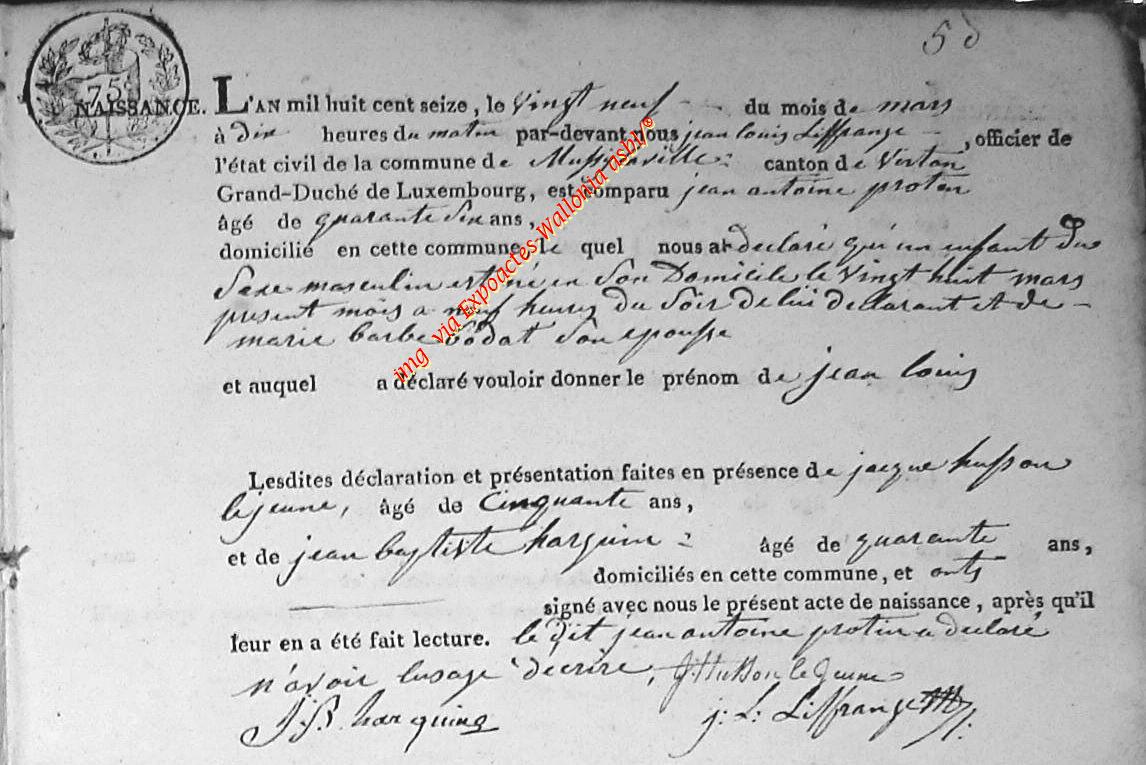 5 d
75
NAISSANCE. L'AN mil huit cent seize, le vingt neuf du mois de mars
à dix heures du matin par-devant nous jean louis Liffrange, officier de
l'état civil de la commune de Mussy canton de Virton
Grand-Duché de Luxembourg, est comparu jean antoine protin
âgé de quarante six ans,
domicilié en cette commune, le quel nous a declaré qu'un enfant du
Sexe masculin est né en Son Domicile le vingt huit mars
present mois a neuf heures du Soir de lui declarant et de
marie barbe Son epousse
et auquel a déclaré vouloir donner le prénom de jean louis
Lesdites déclaration et présentation faites en présence de jacque husson
le jeune, âgé de Cinquante ans,
et de jean baptiste harquin âgé de quarante ans,
domiciliés en cette commune, et onts
signé avec nous le présent acte de naissance, après qu'il
leur en a été fait lecture. le dit jean antoine protin a declaré
n'avoir lusage decrire, J. Husson le Jeune
J. B. harquin j: L: Liffrange
img via Expoactes-Wallonia asbl/©